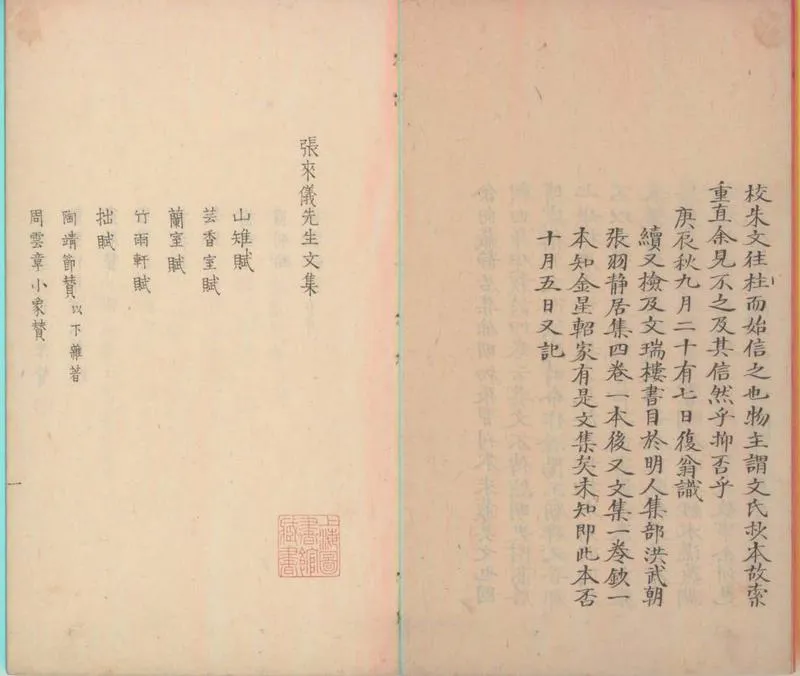 校朱文往往而始信之也物主謂文氏抄本故索
重直余見不之及其信然乎抑否乎
庚辰秋九月二十有七日復翁識
續又檢及文瑞樓書目於明人集部洪武朝
張羽静居集四卷一本後又文集一卷欽一
本知金星軺家有是文集矣未知即此本否
十月五日又記
張來儀先生文集
山雉賦
芸香室賦
蘭室賦
竹雨軒賦
拙賦
陶靖節賛以下雜著
周雲章小象賛
上海圖
書館
藏書